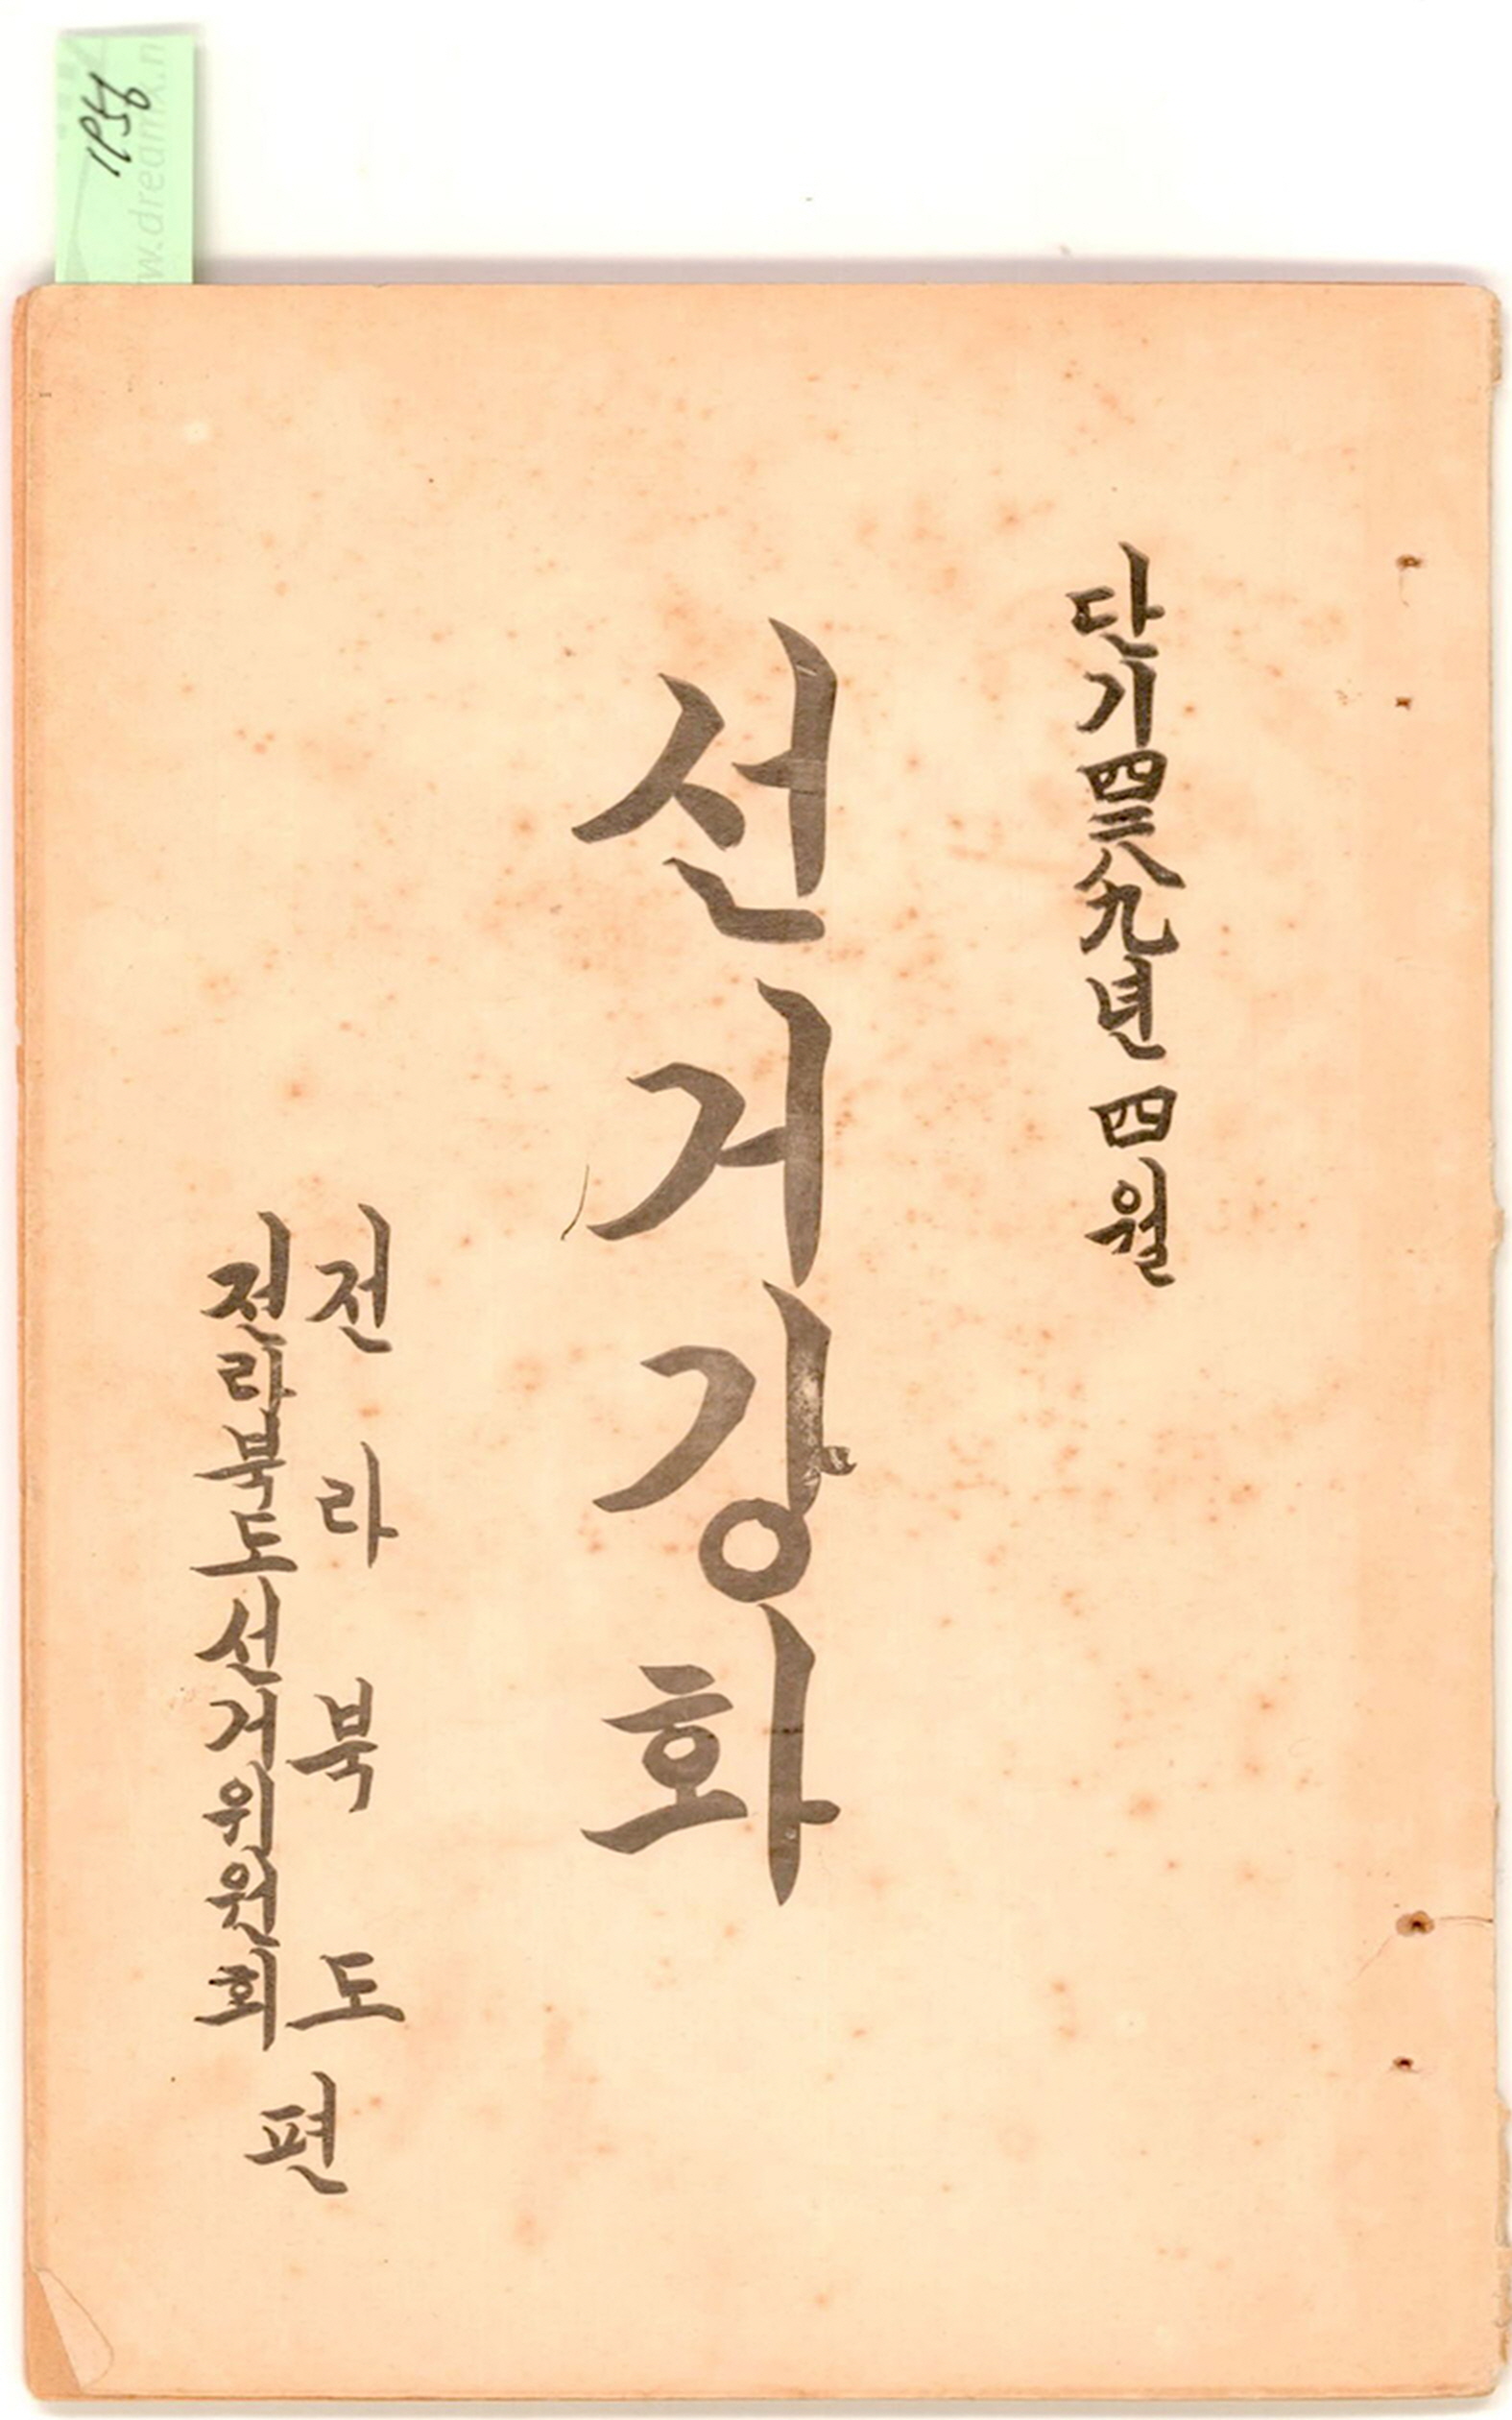 1956
w.dreamx.n
단기四二八九년 四월
선거강화
전라북도
전라북도선거위원회
편